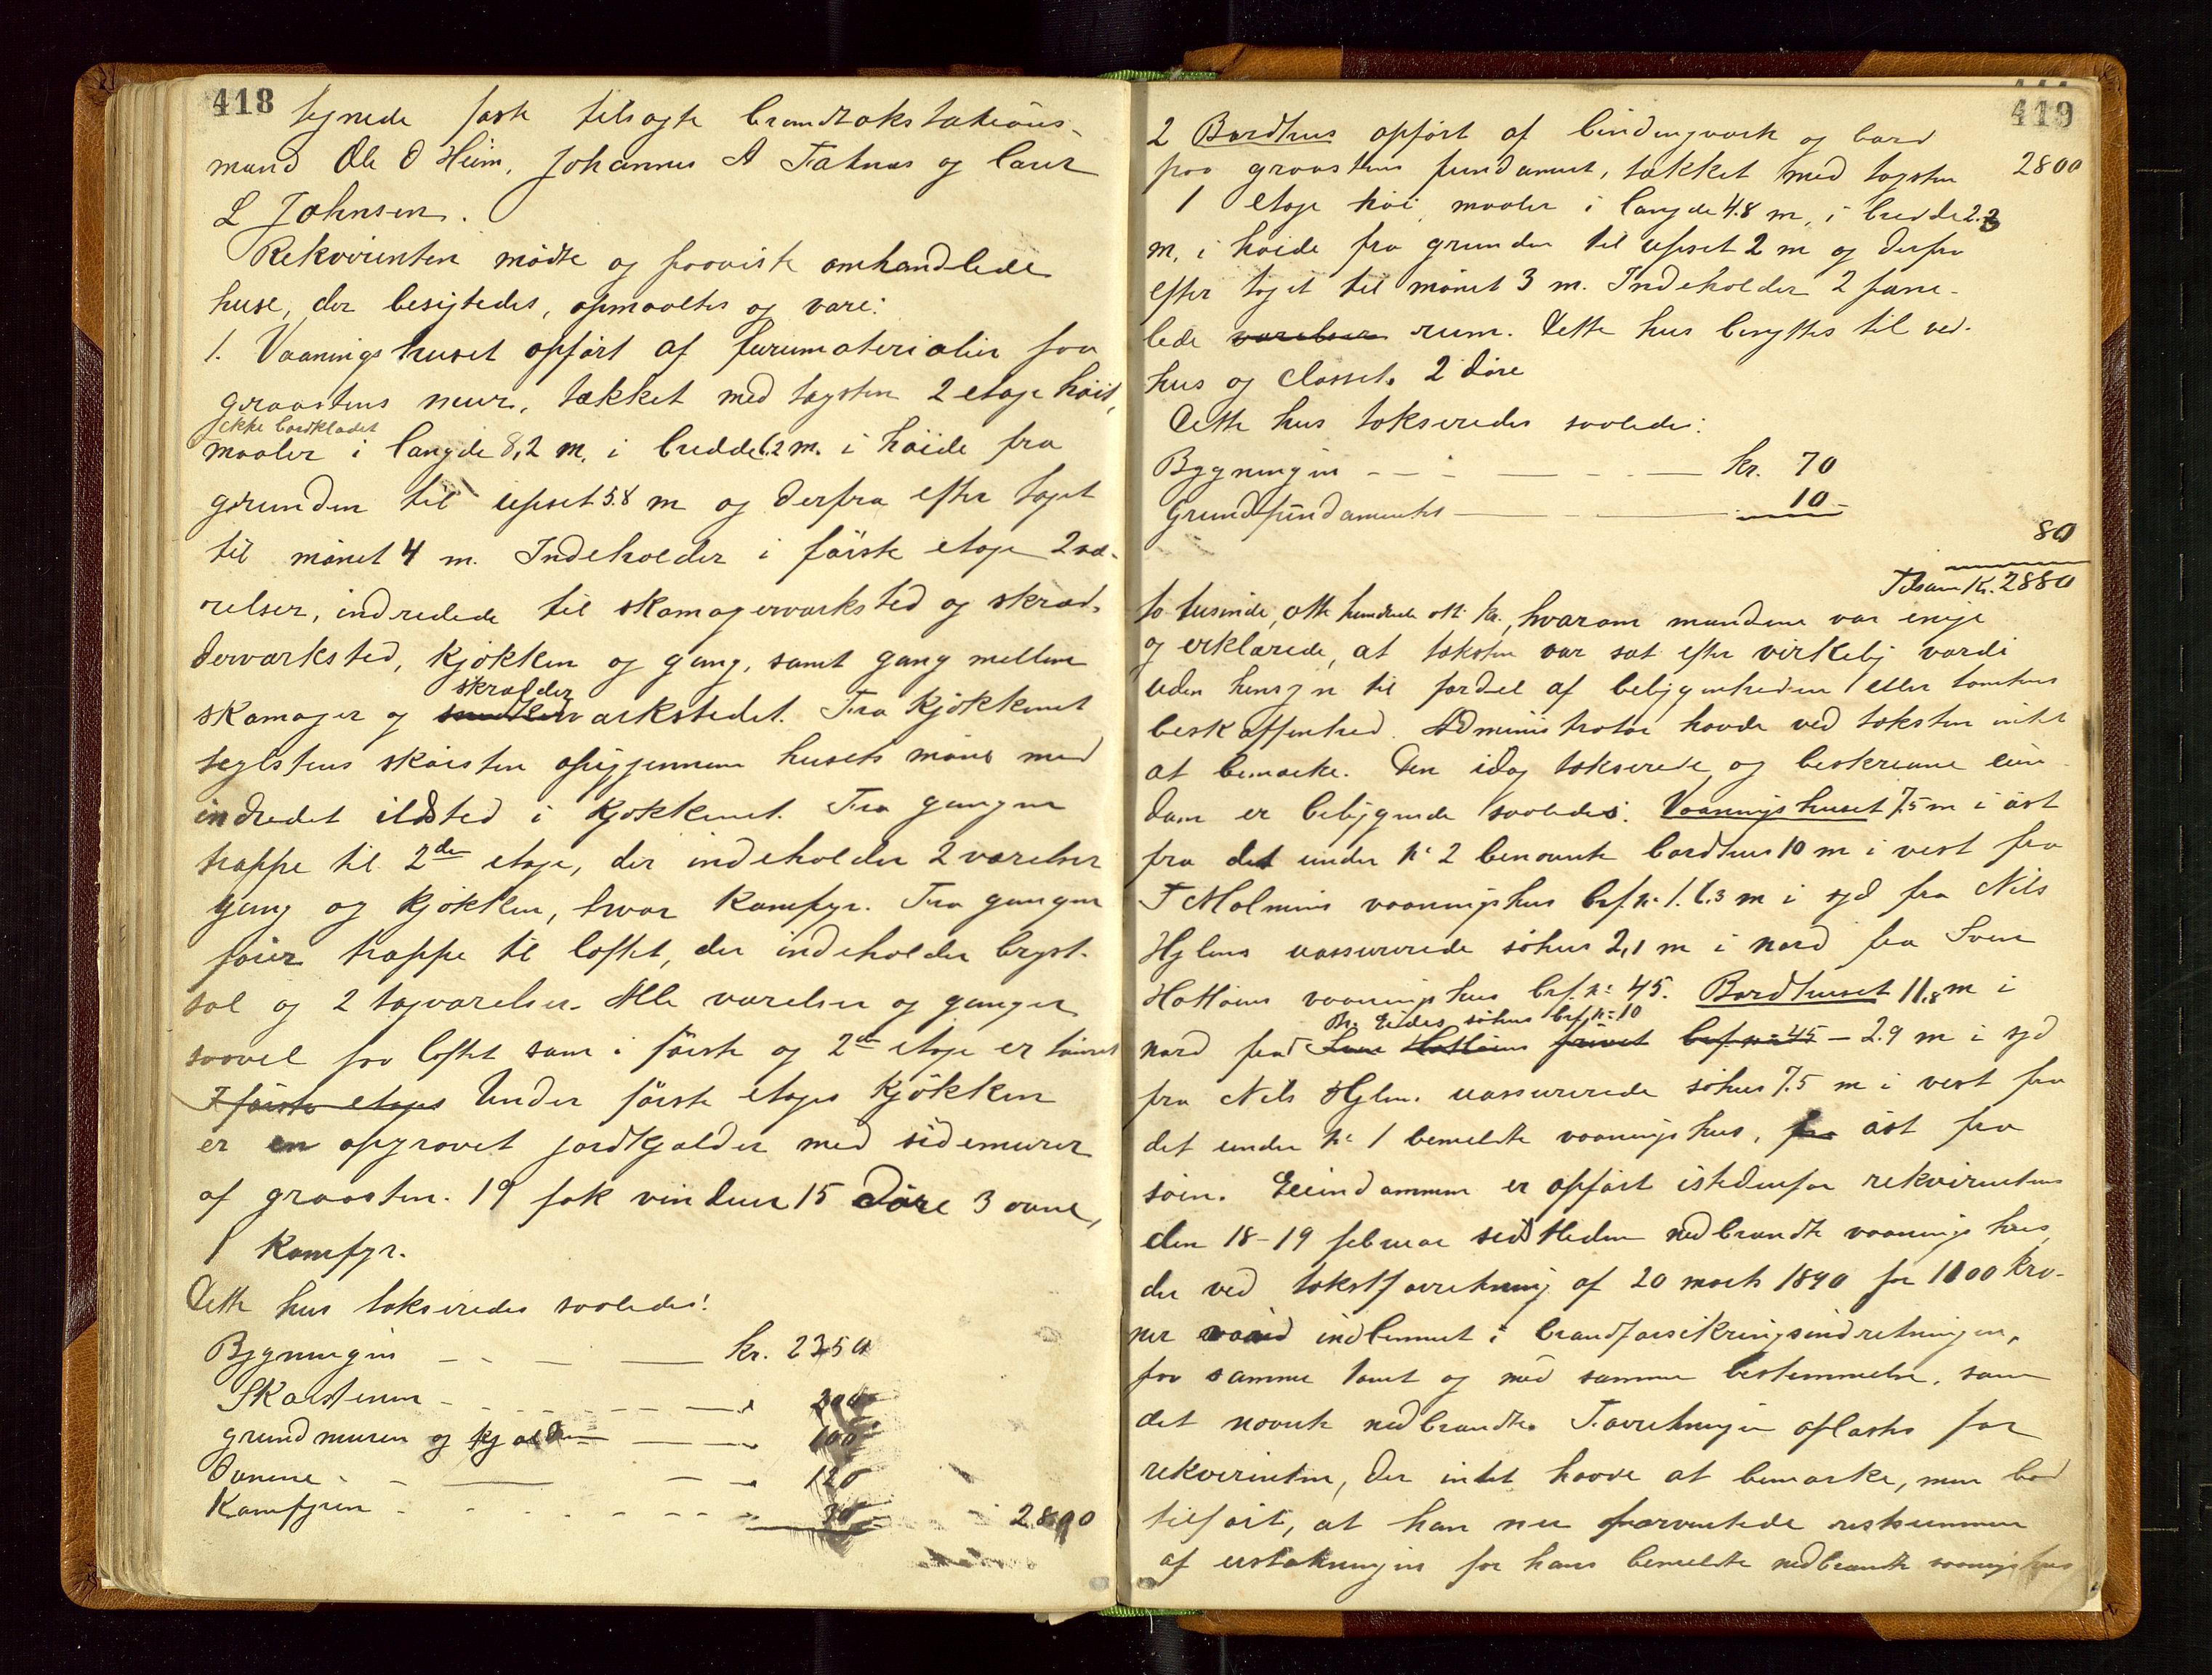 418
tegnede faste tilsagte brandtakstations-
mænd Ole O Heim, Johannes A Tatnæs og Laur
L Johnsen.
Rekvirenten mødte og paaviste omhandlede
huse, der besigtedes, opmaaltes og vare:
1. Vaaningshuset opført af furumaterialier paa
graastens mur, tækket med tagsten 2 etage høit,
ikke bordklædet
maaler i længde 8,2 m, i bredde 6,2 m. i høide fra
grunden til upset 5.8 m og derfra efter taget
til mønet 4 m. Indeholder i første etage 2 væ-
relser, indredede til skomagerværksted og skræd-
derværksted, kjøkken og gang, samt gang mellem
skrædder
skomager og værkstedet. Fra kjøkkenet
teglstens skorsten opigjennem husets møne med
indredet ildsted i kjøkkenet. Fra gangen
trappe til 2den etage, der indeholder 2 værelser
gang og kjøkken, hvor komfyr. Fra gangen
fører trappe til loftet, der indeholder bryst-
sal og 2 tagværelser. Alle værelser og ganger
saavel paa loftet som i første og 2den etage er
I første etages Under første etages kjøkken
er en opgravet jordkjælder med sidemurer
af graasten. 19 fak vinduer 15 døre 3 ovne,
1 komfyr.
Dette hus takseredes saaledes:
Bygningen kr. 2350
Skorstenen 200
grundmuren og kjælder 100
Ovnene 120
Komfyren 30 2800
419
2 Bordhus opført af bindingværk og bord
paa graastens fundament, tækket med tagsten 2800
1 etage høi, maaler i længde 4.8 m, i bredde 2.3
m, i høide fra grunden til upset 2 m og derfra
efter taget til mønet 3 m. Indeholder 2 pane-
lede værelser rum. Dette hus benyttes til ved-
hus og closset. 2 døre
Dette hus takseredes saaledes:
Bygningen kr. 70
Grundfundamentet 10
80
Tilsam Kr. 2880
to tusinde, otte hundrede otti kr., hvorom mændene var enige
og erklærede, at taksten var sat efter virkelig værdi
uden hensyn til fordel af beliggenheden eller tomtens
beskaffenhed. Administrator havde ved taksten intet
at bemærke. Den idag takserede og beskrevne eien
dom er beliggende saaledes: Vaaningshuset 7.5 m i øst
fra det under № 2 benævnte bordhus 10 m i vest fra
T Malmins vaaningshus brf. № 1. 6.3 m i syd fra Nils
Hylens uassurerede søhus 2,1 m i nord fra Sven
Hatløens vaaningshus brf. № 45. Bordhuset 11.8 m i
Eides søhus brf. № 10
nord fra Sven Hatløens privet brf № 45 – 2.9 m i syd
fra Nils Hylen. uassurerede søhus 7.5 m i vest fra
det under № 1 bemeldte vaaningshus, fra øst fra
søen. Eiendommen er opført istedenfor rekvirentens
den 18–19 februar sidstleden nedbrændte vaaningshus,
der ved takstforretning af 20 marts 1890 for 1100 kro-
ner indlemmet i brandforsikringsindretningen,
paa samme tomt og med samme bestemmelse, som
det nævnte nedbrændte. Forretningen oplæstes for
rekvirenten, der intet havde at bemærke, men bad
tilført, at han nu forventede restsummen
af erstatningen for hans bemeldte nedbrændte vaaningshus